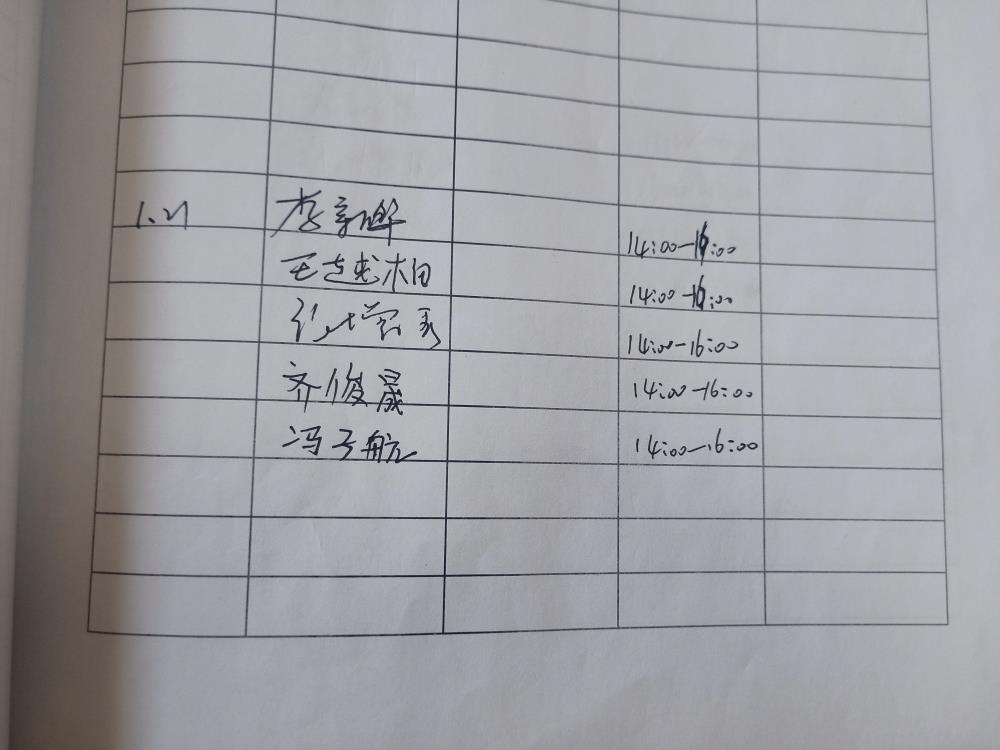 1.21 李新晔 14:00-16:00
王 相 14:00-16:00
14:00-16:00
齐俊晟 14:00-16:00
冯子航 14:00-16:00